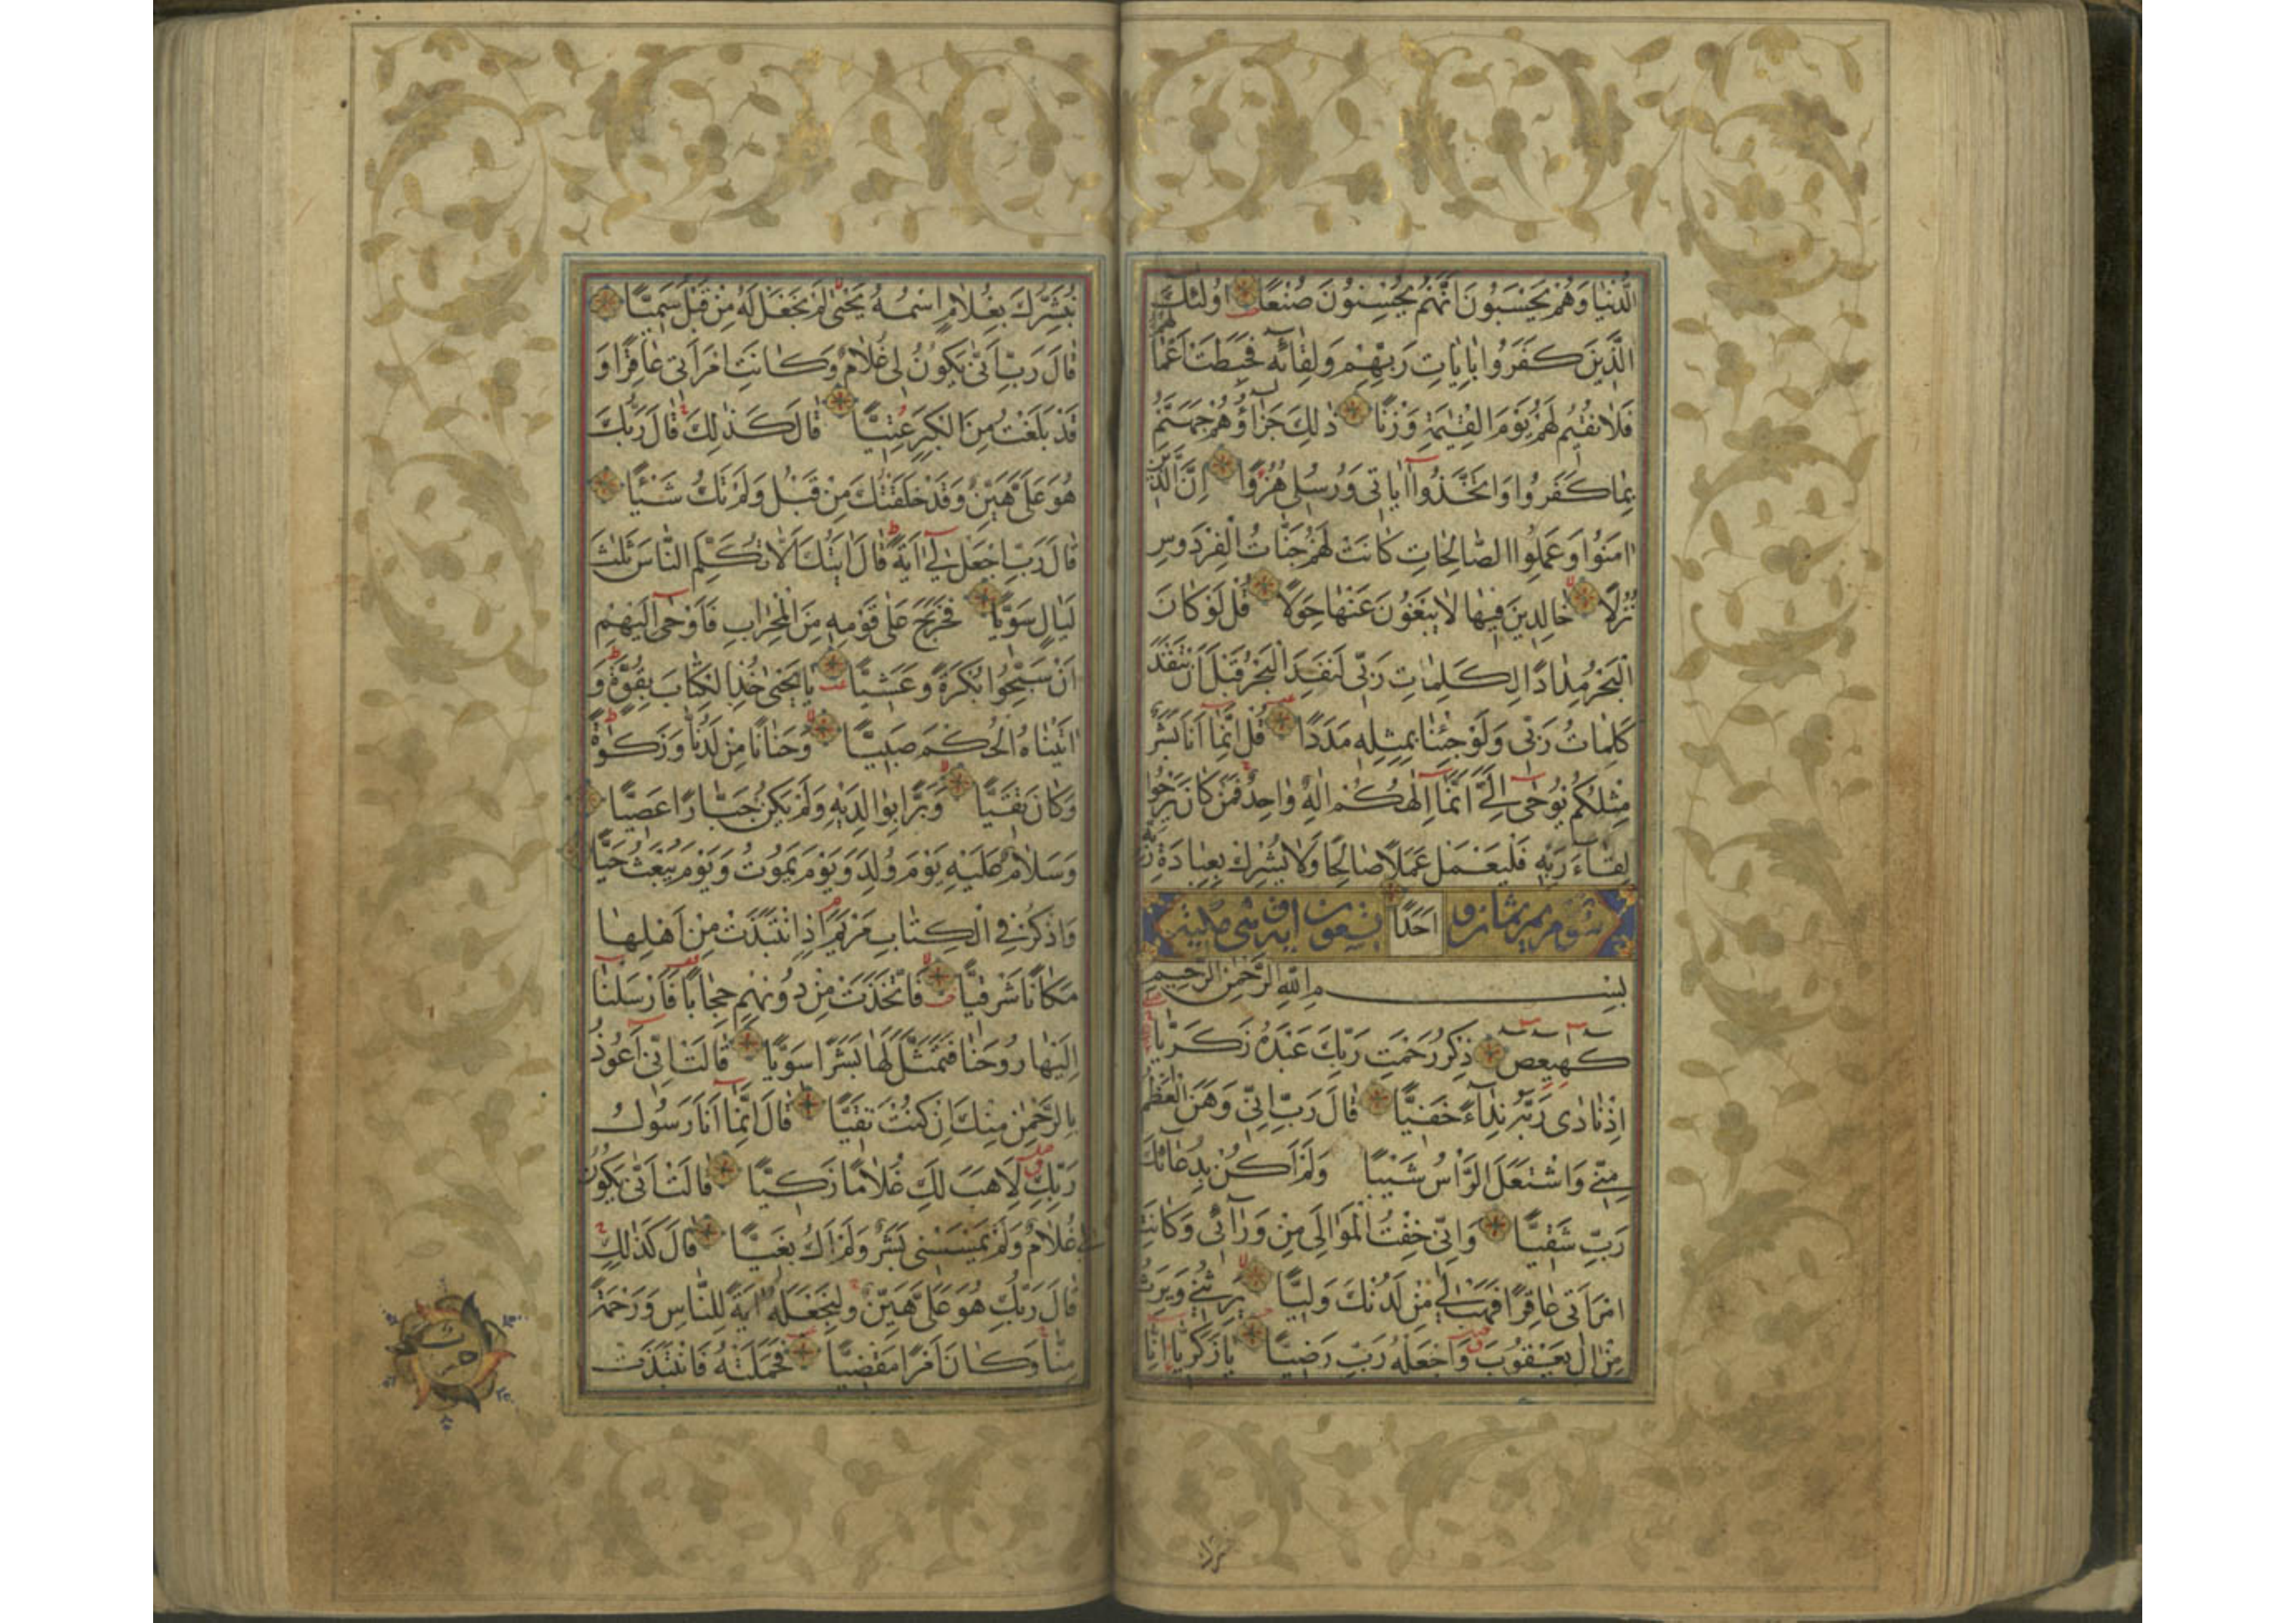 الدُّنْيَا وَهُمْ يَحْسَبُونَ اَنَّهُمْ يُحْسِنُونَ صُنْعًا اُولٰئِكَ
الَّذِينَ كَفَرُوا بِاٰيَاتِ رَبِّهِمْ وَلِقَائِهِ فَحَبِطَتْ اَعْمَالُهُمْ
فَلَا نُقِيمُ لَهُمْ يَوْمَ الْقِيٰمَةِ وَزْنًا ذٰلِكَ جَزَاؤُهُمْ جَهَنَّمُ
بِمَا كَفَرُوا وَاتَّخَذُوا اٰيَاتِى وَرُسُلِى هُزُوًا اِنَّ الَّذِينَ
اٰمَنُوا وَعَمِلُوا الصَّالِحَاتِ كَانَتْ لَهُمْ جَنَّاتُ الْفِرْدَوْسِ
نُزُلًا خَالِدِينَ فِيهَا لَا يَبْغُونَ عَنْهَا حِوَلًا قُلْ لَوْ كَانَ
الْبَحْرُ مِدَادًا لِكَلِمَاتِ رَبِّى لَنَفِدَ الْبَحْرُ قَبْلَ اَنْ تَنْفَدَ
كَلِمَاتُ رَبِّى وَلَوْ جِئْنَا بِمِثْلِهِ مَدَدًا قُلْ اِنَّمَا اَنَا بَشَرٌ
مِثْلُكُمْ يُوحٰى اِلَىَّ اَنَّمَا اِلٰهُكُمْ اِلٰهٌ وَاحِدٌ فَمَنْ كَانَ يَرْجُوا
لِقَاءَ رَبِّهِ فَلْيَعْمَلْ عَمَلًا صَالِحًا وَلَا يُشْرِكْ بِعِبَادَةِ رَبِّهِ
اَحَدًا
بِسْمِ اللّٰهِ الرَّحْمٰنِ الرَّحِيمِ
كهيعص ذِكْرُ رَحْمَتِ رَبِّكَ عَبْدَهُ زَكَرِيَّا
اِذْ نَادٰى رَبَّهُ نِدَاءً خَفِيًّا قَالَ رَبِّ اِنِّى وَهَنَ الْعَظْمُ
مِنِّى وَاشْتَعَلَ الرَّاْسُ شَيْبًا وَلَمْ اَكُنْ بِدُعَائِكَ
رَبِّ شَقِيًّا وَاِنِّى خِفْتُ الْمَوَالِىَ مِنْ وَرَائِى وَكَانَتِ
امْرَاَتِى عَاقِرًا فَهَبْ لِى مِنْ لَدُنْكَ وَلِيًّا يَرِثُنِى وَيَرِثُ
مِنْ اٰلِ يَعْقُوبَ وَاجْعَلْهُ رَبِّ رَضِيًّا يَا زَكَرِيَّا اِنَّا
نُبَشِّرُكَ بِغُلَامٍ اسْمُهُ يَحْيٰى لَمْ نَجْعَلْ لَهُ مِنْ قَبْلُ سَمِيًّا
قَالَ رَبِّ اَنّٰى يَكُونُ لِى غُلَامٌ وَكَانَتِ امْرَاَتِى عَاقِرًا وَ
قَدْ بَلَغْتُ مِنَ الْكِبَرِ عِتِيًّا قَالَ كَذٰلِكَ قَالَ رَبُّكَ
هُوَ عَلَىَّ هَيِّنٌ وَقَدْ خَلَقْتُكَ مِنْ قَبْلُ وَلَمْ تَكُ شَيْئًا
قَالَ رَبِّ اجْعَلْ لِى اٰيَةً قَالَ اٰيَتُكَ اَلَّا تُكَلِّمَ النَّاسَ ثَلٰثَ
لَيَالٍ سَوِيًّا فَخَرَجَ عَلٰى قَوْمِهِ مِنَ الْمِحْرَابِ فَاَوْحٰى اِلَيْهِمْ
اَنْ سَبِّحُوا بُكْرَةً وَعَشِيًّا يَا يَحْيٰى خُذِ الْكِتَابَ بِقُوَّةٍ وَ
اٰتَيْنَاهُ الْحُكْمَ صَبِيًّا وَحَنَانًا مِنْ لَدُنَّا وَزَكٰوةً
وَكَانَ تَقِيًّا وَبَرًّا بِوَالِدَيْهِ وَلَمْ يَكُنْ جَبَّارًا عَصِيًّا
وَسَلَامٌ عَلَيْهِ يَوْمَ وُلِدَ وَيَوْمَ يَمُوتُ وَيَوْمَ يُبْعَثُ حَيًّا
وَاذْكُرْ فِى الْكِتَابِ مَرْيَمَ اِذِ انْتَبَذَتْ مِنْ اَهْلِهَا
مَكَانًا شَرْقِيًّا فَاتَّخَذَتْ مِنْ دُونِهِمْ حِجَابًا فَاَرْسَلْنَا
اِلَيْهَا رُوحَنَا فَتَمَثَّلَ لَهَا بَشَرًا سَوِيًّا قَالَتْ اِنِّى اَعُوذُ
بِالرَّحْمٰنِ مِنْكَ اِنْ كُنْتَ تَقِيًّا قَالَ اِنَّمَا اَنَا رَسُولُ
رَبِّكِ لِاَهَبَ لَكِ غُلَامًا زَكِيًّا قَالَتْ اَنّٰى يَكُونُ
لِى غُلَامٌ وَلَمْ يَمْسَسْنِى بَشَرٌ وَلَمْ اَكُ بَغِيًّا قَالَ كَذٰلِكِ
قَالَ رَبُّكِ هُوَ عَلَىَّ هَيِّنٌ وَلِنَجْعَلَهُ اٰيَةً لِلنَّاسِ وَرَحْمَةً
مِنَّا وَكَانَ اَمْرًا مَقْضِيًّا فَحَمَلَتْهُ فَانْتَبَذَتْ